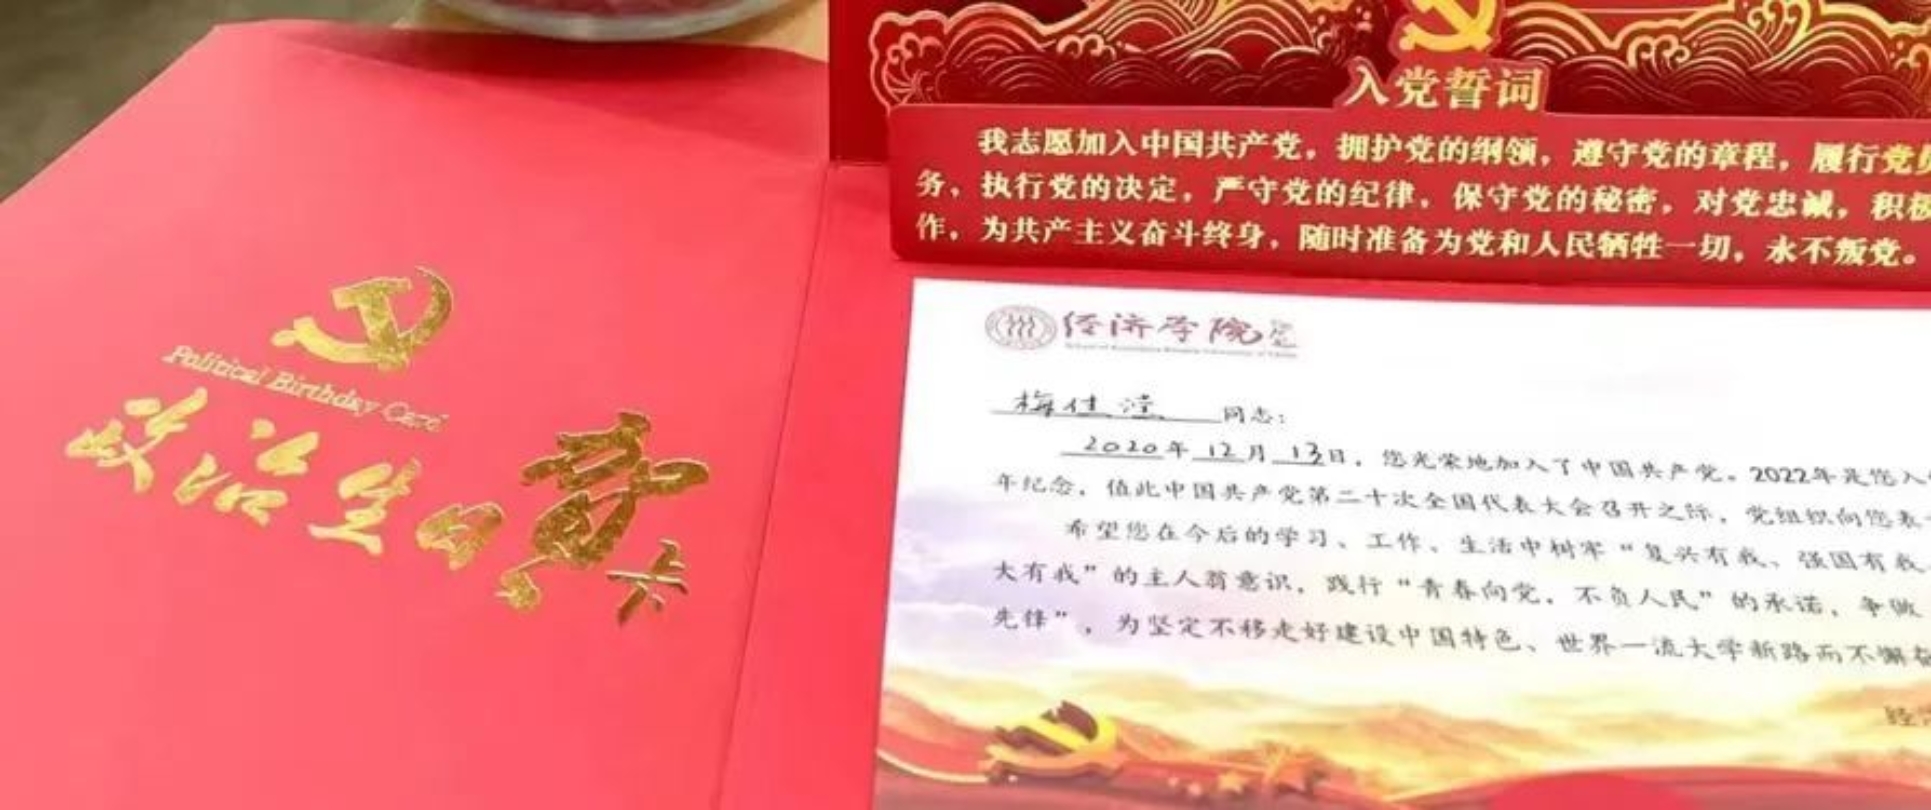 Political Birthday Card
政治生日贺卡
入党誓词
我志愿加入中国共产党，拥护党的纲领，遵守党的章程，履行党员
务，执行党的决定，严守党的纪律，保守党的秘密，对党忠诚，积极
作，为共产主义奋斗终身，随时准备为党和人民牺牲一切，永不叛党。
经济学院
梅佳滢 同志：
2020年12月13日，您光荣地加入了中国共产党。2022年是您入
年纪念，值此中国共产党第二十次全国代表大会召开之际，党组织向您表
希望您在今后的学习、工作、生活中树牢“复兴有我、强国有我
大有我”的主人翁意识，践行“青春向党，不负人民”的承诺，争做
先锋”，为坚定不移走好建设中国特色、世界一流大学新路而不懈奋